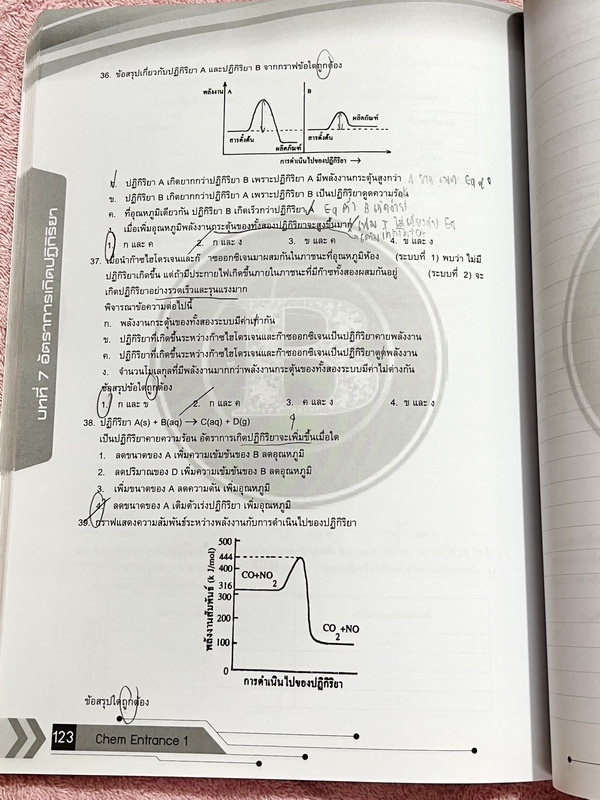 36. ข้อสรุปเกี่ยวกับปฏิกิริยา A และปฏิกิริยา B จากกราฟข้อใดถูกต้อง
พลังงาน A B
สารตั้งต้น ผลิตภัณฑ์ สารตั้งต้น ผลิตภัณฑ์
การดำเนินไปของปฏิกิริยา
ก. ปฏิกิริยา A เกิดยากกว่าปฏิกิริยา B เพราะปฏิกิริยา A มีพลังงานกระตุ้นสูงกว่า
ข. ปฏิกิริยา A เกิดยากกว่าปฏิกิริยา B เพราะปฏิกิริยา B เป็นปฏิกิริยาดูดความร้อน
ค. ที่อุณหภูมิเดียวกัน ปฏิกิริยา B เกิดเร็วกว่าปฏิกิริยา
เมื่อเพิ่มอุณหภูมิพลังงานกระตุ้นของทั้งสองปฏิกิริยาจะสูงขึ้นมาก
1. ก และ ค 2. ก และ ง 3. ข และ ค 4. ข และ ง
37. เมื่อนำก๊าซไฮโดรเจนและก๊าซออกซิเจนมาผสมกันในภาชนะที่อุณหภูมิห้อง (ระบบที่ 1) พบว่า ไม่มี
ปฏิกิริยาเกิดขึ้น แต่ถ้ามีประกายไฟเกิดขึ้นภายในภาชนะที่มีก๊าซทั้งสองผสมกันอยู่ (ระบบที่ 2) จะ
เกิดปฏิกิริยาอย่างรวดเร็วและรุนแรงมาก
พิจารณาข้อความต่อไปนี้
ก. พลังงานกระตุ้นของทั้งสองระบบมีค่าเท่ากัน
ข. ปฏิกิริยาที่เกิดขึ้นระหว่างก๊าซไฮโดรเจนและก๊าซออกซิเจนเป็นปฏิกิริยาคายพลังงาน
ค. ปฏิกิริยาที่เกิดขึ้นระหว่างก๊าซไฮโดรเจนและก๊าซออกซิเจนเป็นปฏิกิริยาดูดพลังงาน
ง. จำนวนโมเลกุลที่มีพลังงานมากกว่าพลังงานกระตุ้นของทั้งสองระบบมีค่าไม่ต่างกัน
ข้อสรุปข้อใดถูกต้อง
1. ก และ ข 2. ก และ ค 3. ค และ ง 4. ข และ ง
38. ปฏิกิริยา A(s) + B(aq) → C(aq) + D(g)
เป็นปฏิกิริยาคายความร้อน อัตราการเกิดปฏิกิริยาจะเพิ่มขึ้นเมื่อใด
1. ลดขนาดของ A เพิ่มความเข้มข้นของ B ลดอุณหภูมิ
2. ลดปริมาณของ D เพิ่มความเข้มข้นของ B ลดอุณหภูมิ
3. เพิ่มขนาดของ A ลดความดัน เพิ่มอุณหภูมิ
4. ลดขนาดของ A เติมตัวเร่งปฏิกิริยา เพิ่มอุณหภูมิ
39. กราฟแสดงความสัมพันธ์ระหว่างพลังงานกับการดำเนินไปของปฏิกิริยา
พลังงานสัมพันธ์ (k J/mol)
500
444
400
316
300
200
100
0
CO+NO2
CO2+NO
การดำเนินไปของปฏิกิริยา
ข้อสรุปใดถูกต้อง
123 Chem Entrance 1
บทที่ 7 อัตราการเกิดปฏิกิริยา